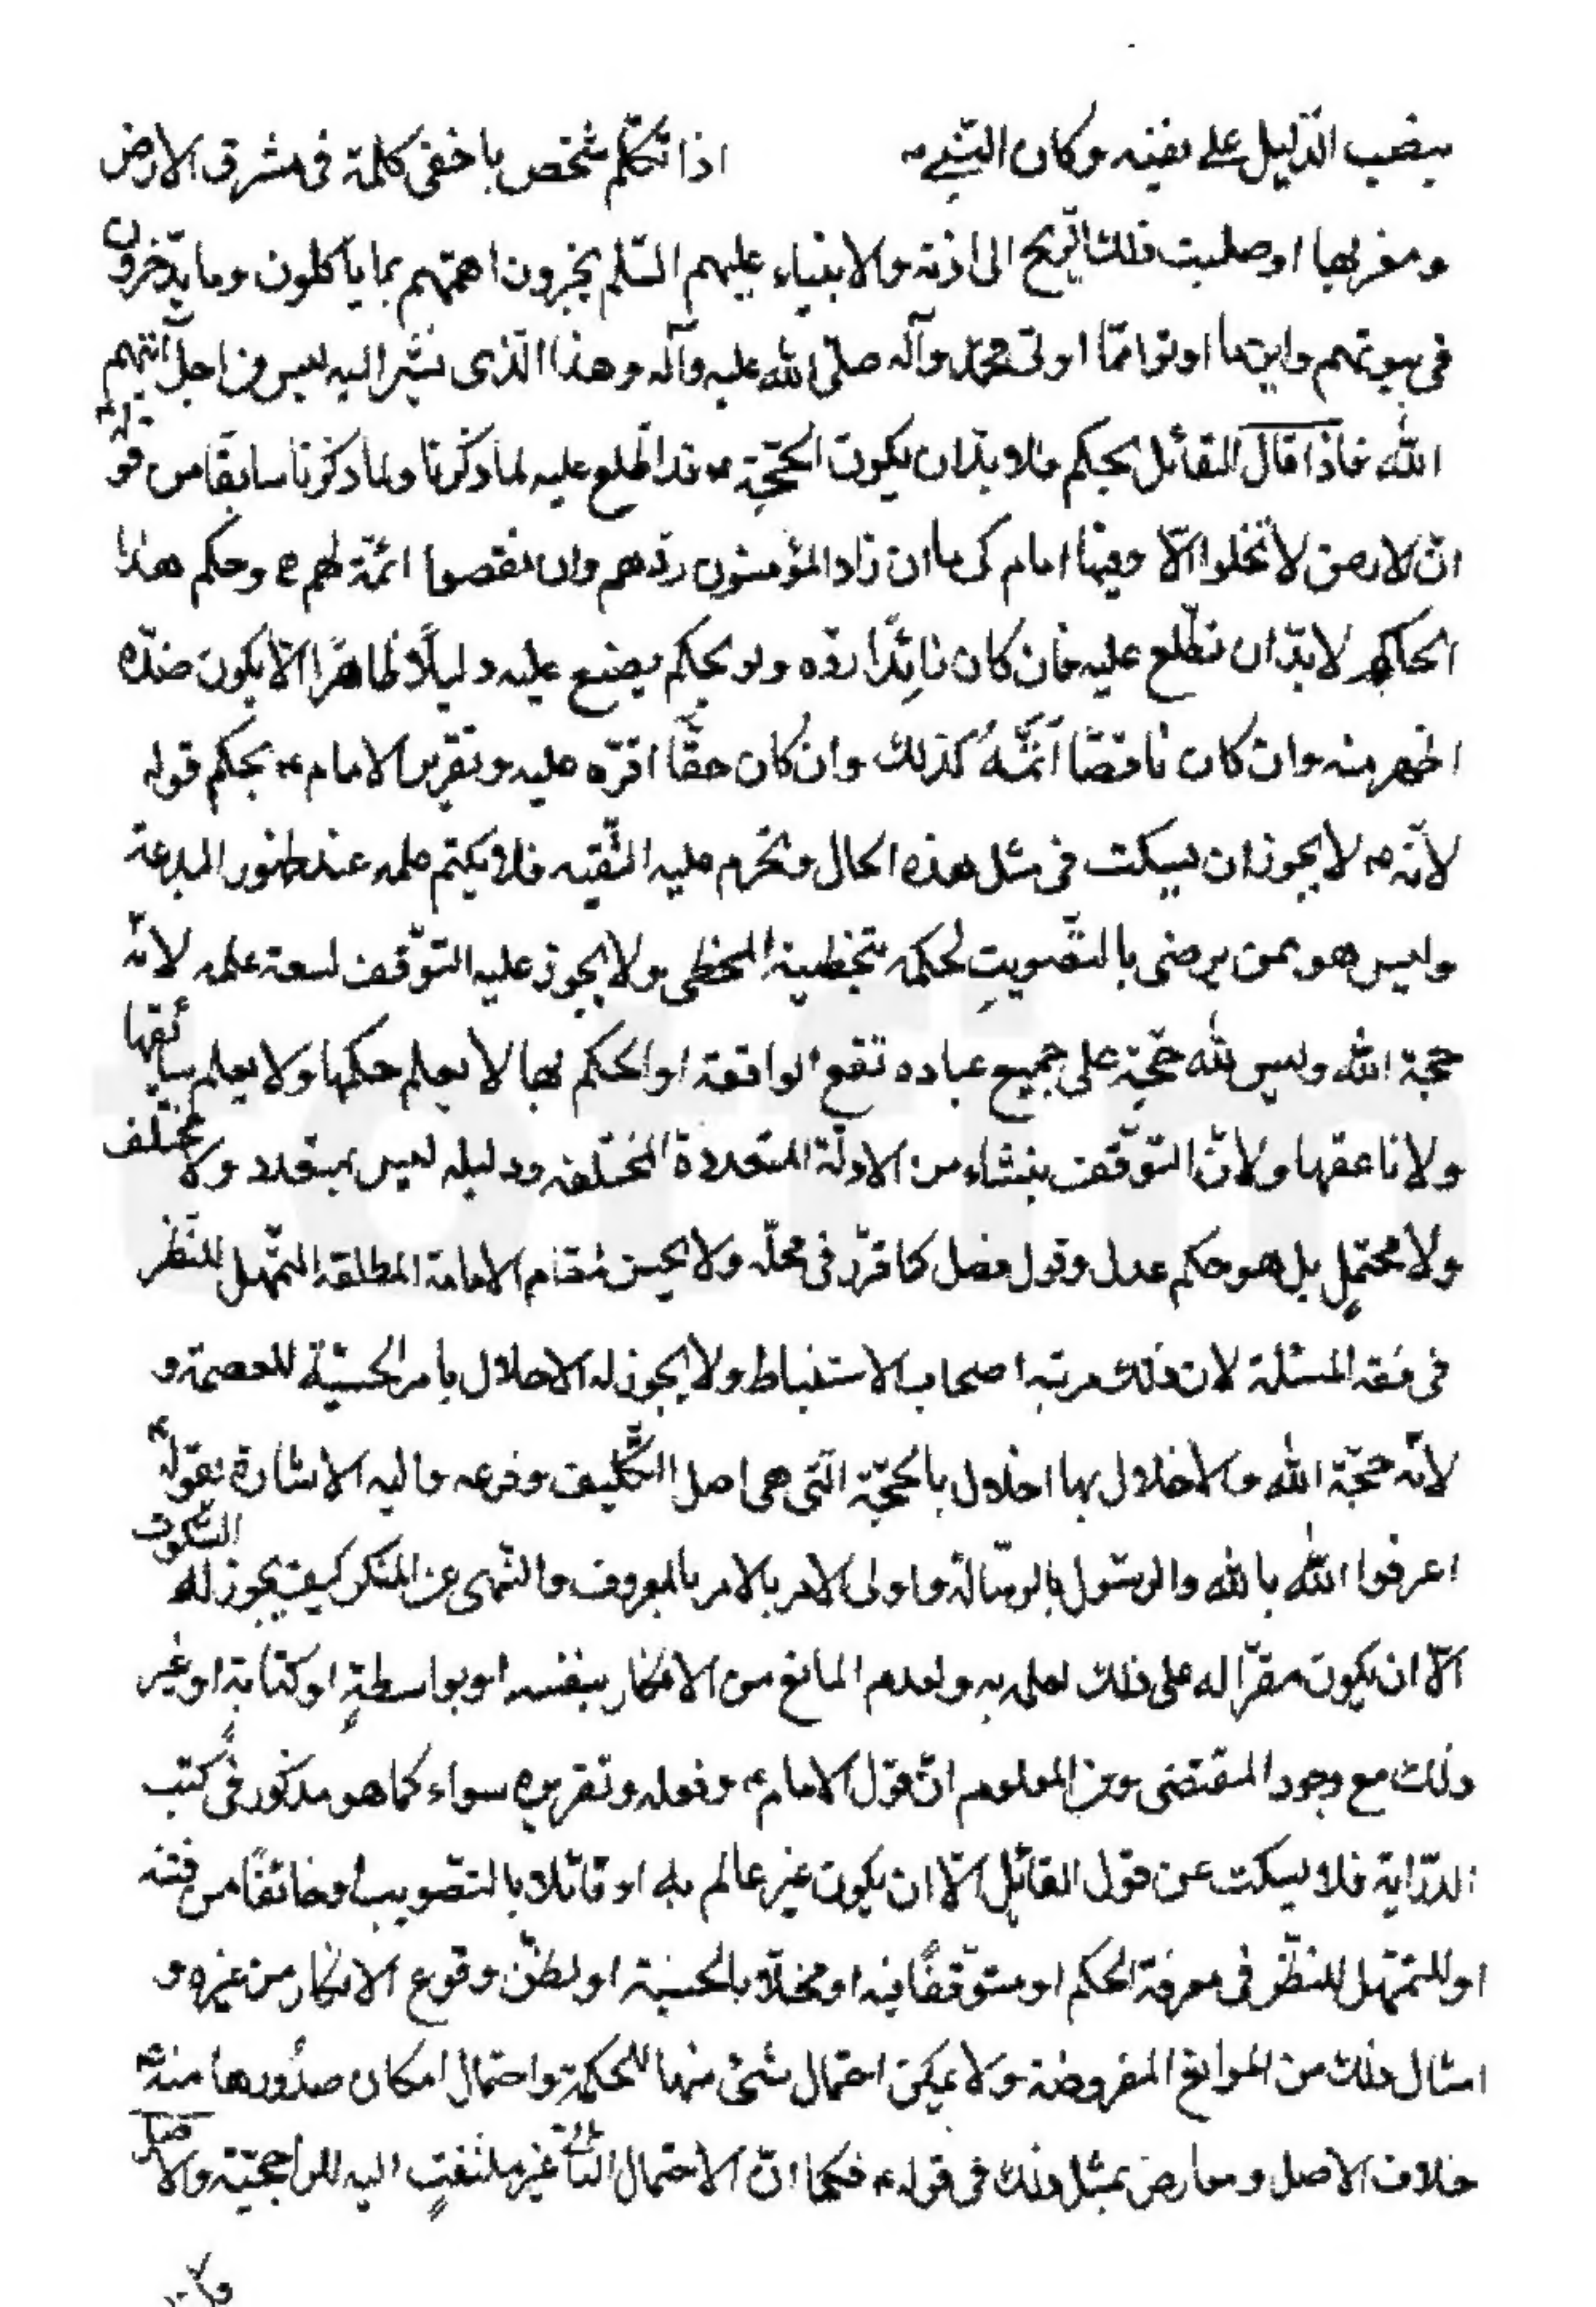 بنصب الدّليل على نفيه وكان النّبيّ ص اذا تكلّم شخص باخفى كلمة فى مشرق الارض
ومغربها اوصلت تلك الرّيح الى اذنه والانبياء عليهم السّلم يخبرون اممهم بما ياكلون وما يدّخرون
فى بيوتهم واين ما اوتوا ممّا اوتى محمّد وآله صلّى الله عليه وآله وهذا الّذى نشير اليه ليس من اجل آتيهم
الله فاذا قال القائل بحكم فلا بدّ ان يكون الحجّة ع قد اطّلع عليه لما ذكرنا ولما ذكرنا سابقا من قولهم
انّ الارض لا تخلوا الّا وفيها امام كى ما ان زاد المؤمنون ردّهم وان نقصوا اتمّه لهم ع وحكم هذا
الحاكم لا بدّ ان نطّلع عليه فان كان زائدًا ردّه ولو بحكم يضع عليه دليلًا ظاهرًا الّا يكون ضدّه
اظهر منه وان كان ناقصًا اَتمّهُ كذلك وان كان حقًّا اقرّه عليه وتقرير الامام ع بحكم قوله
لانّه ع لا يجوز ان يسكت فى مثل هذه الحال وتحرم عليه التّقيه فلا يكتم علمه عند ظهور البدعة
وليس هو ممن يرضى بالتّصويبِ لحكمه بتخطئة المخطى ولا يجوز عليه التوقّف لسعة علمه لانّه
حجة الله وليس لله حجّة على جميع عباده تقع الواقعة او الحكم بها لا يعلم حكمها ولا يعلم سائقها
ولا ناعقها ولانّ التوقّف ينشاء من الادلّة المتعددة المختلفه ودليله ليس بمتعدد ولا مختلف
ولا محتملٍ بل هو حكم عدل وقول فصل كما قرّر فى محلّه ولا يحسن مُقام الامامة المطلقه التمهل للنّظر
فى فقه المسئلة لان ذلك مرتبه اصحاب الاستنباط ولا يجوز له الاخلال بامر الحسبيّة للعصمة و
لانّه حجّة الله والاخلال بها اخلال بالحجّة الّتى هى اصل التّكليف وفرعه واليه الاشارة بقوله ع
اعرفوا الله بالله والرسول بالرّسالة واولى الامر بالامر بالمعروف والنّهى عن المنكر كيف يجوز له السّكوت
الّا ان يكون مقرّا له على ذلك لعلمه به ولعدم المانع من الانكار بنفسه او بواسطةٍ او كتابةٍ او غير
ذلك مع وجود المقتضى ومن المعلوم انّ قول الامام ع وفعله وتقريره سواء كما هو مذكور فى كتب
الدّراية فلا يسكت عن قول القائل الّا ان يكون غير عالم به او قائلا بالتّصويب او خائفًا من فتنه
او للتمهّل للنّظر فى معرفة الحكم او متوقّفًا فيه او مخلّا بالحسبة او لظنّ وقوع الانكار من غيره و
امثال ذلك من الموانع المفروضة ولا يمكن احتمال شئ منها للحكمة واحتمال امكان صدُورها منه ع
خلاف الاصل ومعارض بمثل ذلك فى قوله ع فكما انّ الاحتمال الثّانى غير ملتفتٍ اليه للراجحيّة والاصل